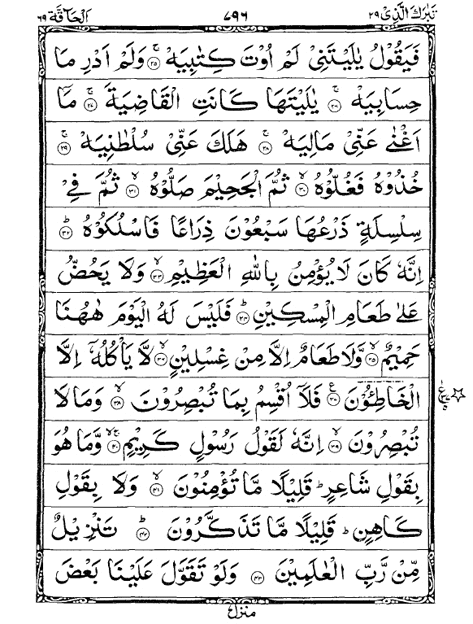 تَبٰرَكَ الَّذِىْ ٢٩ ٧٩٦ اَلْحَآقَّة ٦٩
فَيَقُوْلُ يٰلَيْتَنِىْ لَمْ اُوْتَ كِتٰبِيَهْ ۚ﴿٢٥﴾ وَلَمْ اَدْرِ مَا
حِسَابِيَهْ ۚ﴿٢٦﴾ يٰلَيْتَهَا كَانَتِ الْقَاضِيَةَ ۚ﴿٢٧﴾ مَاۤ
اَغْنٰى عَنِّىْ مَالِيَهْ ۚ﴿٢٨﴾ هَلَكَ عَنِّىْ سُلْطٰنِيَهْ ۚ﴿٢٩﴾
خُذُوْهُ فَغُلُّوْهُ ۙ﴿٣٠﴾ ثُمَّ الْجَحِيْمَ صَلُّوْهُ ۙ﴿٣١﴾ ثُمَّ فِىْ
سِلْسِلَةٍ ذَرْعُهَا سَبْعُوْنَ ذِرَاعًا فَاسْلُكُوْهُ ؕ﴿٣٢﴾
اِنَّهٗ كَانَ لَا يُؤْمِنُ بِاللّٰهِ الْعَظِيْمِ ۙ﴿٣٣﴾ وَلَا يَحُضُّ
عَلٰى طَعَامِ الْمِسْكِيْنِ ؕ﴿٣٤﴾ فَلَيْسَ لَهُ الْيَوْمَ هٰهُنَا
حَمِيْمٌ ۙ﴿٣٥﴾ وَّلَا طَعَامٌ اِلَّا مِنْ غِسْلِيْنٍ ۙ﴿٣٦﴾ لَّا يَاْكُلُهٗۤ اِلَّا
الْخَاطِئُوْنَ ۧ﴿٣٧﴾ فَلَاۤ اُقْسِمُ بِمَا تُبْصِرُوْنَ ۙ﴿٣٨﴾ وَمَا لَا
تُبْصِرُوْنَ ۙ﴿٣٩﴾ اِنَّهٗ لَقَوْلُ رَسُوْلٍ كَرِيْمٍ ۚۙ﴿٤٠﴾ وَّمَا هُوَ
بِقَوْلِ شَاعِرٍ ؕ قَلِيْلًا مَّا تُؤْمِنُوْنَ ۙ﴿٤١﴾ وَلَا بِقَوْلِ
كَاهِنٍ ؕ قَلِيْلًا مَّا تَذَكَّرُوْنَ ؕ﴿٤٢﴾ تَنْزِيْلٌ
مِّنْ رَّبِّ الْعٰلَمِيْنَ ﴿٤٣﴾ وَلَوْ تَقَوَّلَ عَلَيْنَا بَعْضَ
منزل